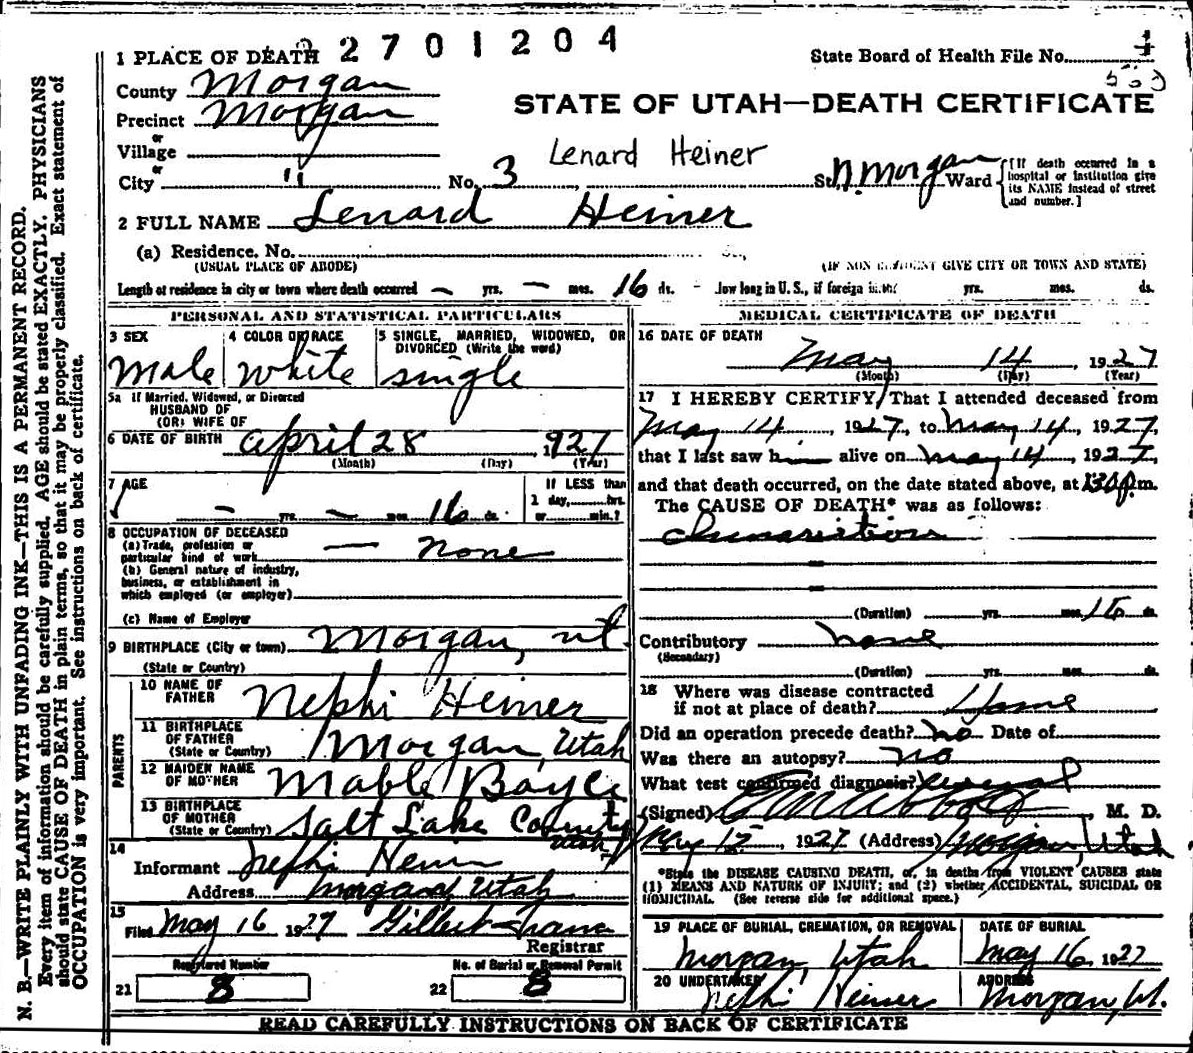 2701204
1 PLACE OF DEATH
State Board of Health File No. 4
County Morgan
STATE OF UTAH—DEATH CERTIFICATE
Precinct Morgan
or
Village
Lenard Heiner
or
City " No. 3 St. N. Morgan Ward
[If death occurred in a hospital or institution give its NAME instead of street and number.]
2 FULL NAME Lenard Heiner
(a) Residence. No. St.,
(USUAL PLACE OF ABODE) (IF NON RESIDENT GIVE CITY OR TOWN AND STATE)
Length of residence in city or town where death occurred — yrs. — mos. 16 ds. How long in U. S., if foreign birth? yrs. mos. ds.
PERSONAL AND STATISTICAL PARTICULARS
3 SEX 4 COLOR OR RACE 5 SINGLE, MARRIED, WIDOWED, OR
DIVORCED (Write the word)
male white single
5a If Married, Widowed, or Divorced
HUSBAND OF
(OR) WIFE OF
6 DATE OF BIRTH april 28, 1927
(Month) (Day) (Year)
7 AGE If LESS than
1 day, hrs.
— yrs. — mos. 16 ds. or min.?
8 OCCUPATION OF DECEASED
(a) Trade, profession or
particular kind of work — none
(b) General nature of industry,
business, or establishment in
which employed (or employer)
(c) Name of Employer
9 BIRTHPLACE (City or town) Morgan, ut.
(State or Country)
PARENTS
10 NAME OF
FATHER Nephi Heiner
11 BIRTHPLACE
OF FATHER
(State or Country) Morgan, Utah
12 MAIDEN NAME
OF MOTHER Mable Boyce
13 BIRTHPLACE
OF MOTHER
(State or Country) Salt Lake County
Utah
14
Informant Nephi Heiner
Address Morgan Utah
15
Filed May 16 1927 Gilbert
Registrar
Registered Number No. of Burial or Removal Permit
21 8 22 8
MEDICAL CERTIFICATE OF DEATH
16 DATE OF DEATH
May 14, 1927
(Month) (Day) (Year)
17 I HEREBY CERTIFY, That I attended deceased from
May 14, 1927, to May 14, 1927,
that I last saw h alive on May 14, 1927,
and that death occurred, on the date stated above, at 130 p.m.
The CAUSE OF DEATH* was as follows:
(Duration) yrs. mos. 16 ds.
Contributory none
(Secondary)
(Duration) yrs. mos. ds.
18 Where was disease contracted
if not at place of death? Home
Did an operation precede death? no Date of
Was there an autopsy? no
What test confirmed diagnosis?
(Signed) , M. D.
May 15, 1927 (Address) Morgan, Utah
*State the DISEASE CAUSING DEATH, or, in deaths from VIOLENT CAUSES state
(1) MEANS AND NATURE OF INJURY; and (2) whether ACCIDENTAL, SUICIDAL OR
HOMICIDAL. (See reverse side for additional space.)
19 PLACE OF BURIAL, CREMATION, OR REMOVAL DATE OF BURIAL
Morgan, Utah May 16, 1927
20 UNDERTAKER ADDRESS
Nephi Heiner Morgan, Ut.
READ CAREFULLY INSTRUCTIONS ON BACK OF CERTIFICATE
N. B.—WRITE PLAINLY WITH UNFADING INK—THIS IS A PERMANENT RECORD.
Every item of information should be carefully supplied. AGE should be stated EXACTLY. PHYSICIANS
should state CAUSE OF DEATH in plain terms, so that it may be properly classified. Exact statement of
OCCUPATION is very important. See instructions on back of certificate.